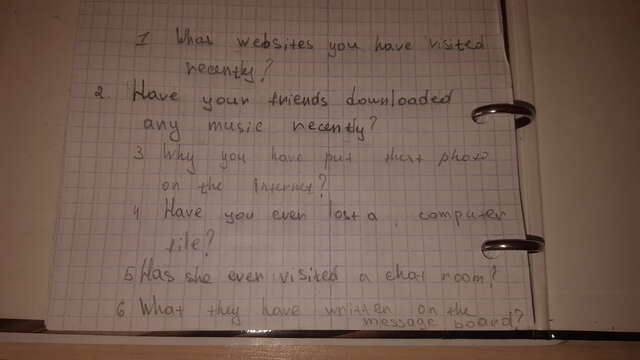 1 What websites you have visited
recently?
2. Have your friends downloaded
any music recently?
3 Why you have put that photo
on the Internet?
4 Have you ever lost a computer
file?
5 Has she ever visited a chat room?
6 What they have written on the
message board?